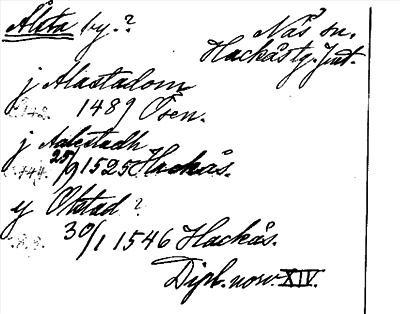 Ålsta by.?
Näs sn.
Hackås tg. Jmt.
j Alastadom
1489 Åsen.
j Aalestadh
25/9 1525 Hackås.
y Olstad?
30/1 1546 Hackås.
Dipl. norv. XIV.